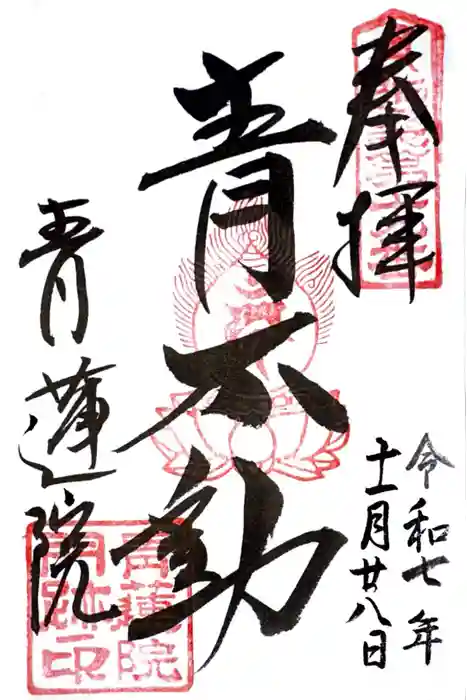 奉拝
令和七年
十一月廿八日
青不動
青蓮院
青蓮院
門跡印